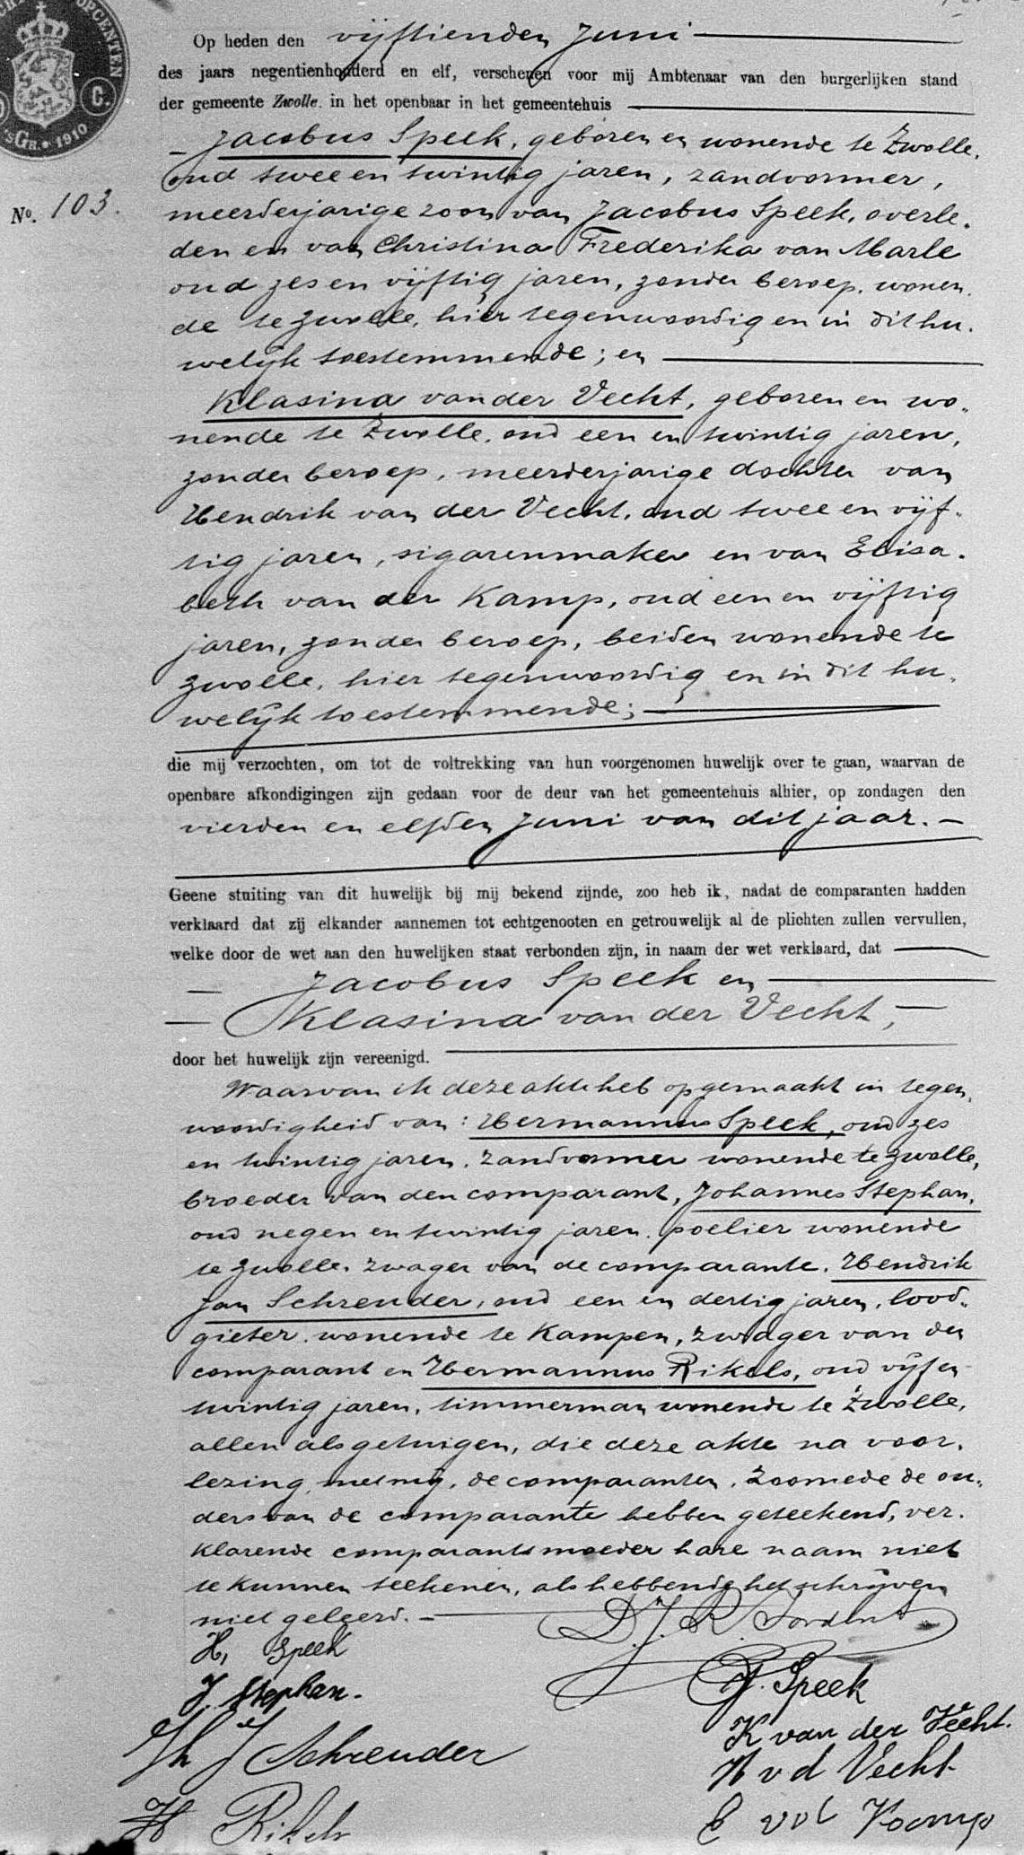 OPCENTEN
C.
'sGR. • 1910
Op heden den vijftienden Juni
des jaars negentienhonderd en elf, verschenen voor mij Ambtenaar van den burgerlijken stand
der gemeente Zwolle, in het openbaar in het gemeentehuis
Jacobus Speek, geboren en wonende te Zwolle,
oud twee en twintig jaren, zandvormer,
No. 103.
meerderjarige zoon van Jacobus Speek, overle-
den en van Christina Frederika van Marle
oud zes en vijftig jaren, zonder beroep, wonen-
de te Zwolle, hier tegenwoordig en in dit hu-
welijk toestemmende; en
Klasina van der Vecht, geboren en wo-
nende te Zwolle, oud een en twintig jaren,
zonder beroep, meerderjarige dochter van
Hendrik van der Vecht, oud twee en vijf-
tig jaren, sigarenmaker en van Elisa-
beth van der Kamp, oud een en vijftig
jaren, zonder beroep, beiden wonende te
Zwolle, hier tegenwoordig en in dit hu-
welijk toestemmende;
die mij verzochten, om tot de voltrekking van hun voorgenomen huwelijk over te gaan, waarvan de
openbare afkondigingen zijn gedaan voor de deur van het gemeentehuis alhier, op zondagen den
vierden en elfden Juni van dit jaar.
Geene stuiting van dit huwelijk bij mij bekend zijnde, zoo heb ik, nadat de comparanten hadden
verklaard dat zij elkander aannemen tot echtgenooten en getrouwelijk al de plichten zullen vervullen,
welke door de wet aan den huwelijken staat verbonden zijn, in naam der wet verklaard, dat
Jacobus Speek en
Klasina van der Vecht,
door het huwelijk zijn vereenigd.
Waarvan ik deze akte heb opgemaakt in tegen-
woordigheid van: Hermannus Speek, oud zes
en twintig jaren, zandvormer wonende te Zwolle,
broeder van den comparant, Johannes Stephan,
oud negen en twintig jaren, poelier wonende
te Zwolle, zwager van de comparante, Hendrik
Jan Schreuder, oud een en dertig jaren, lood-
gieter, wonende te Kampen, zwager van den
comparant en Hermannus Rikels, oud vijf en
twintig jaren, timmerman wonende te Zwolle,
allen als getuigen, die deze akte na voor-
lezing, met mij, de comparanten, zoomede de ou-
ders van de comparante hebben geteekend, ver-
klarende comparants moeder hare naam niet
te kunnen teekenen, als hebbende het schrijven
niet geleerd.
H, Speek
J. Speek
J. Stephan.
K van der Vecht.
H J Schreuder
H v d Vecht
H Rikels
E v d Kamp